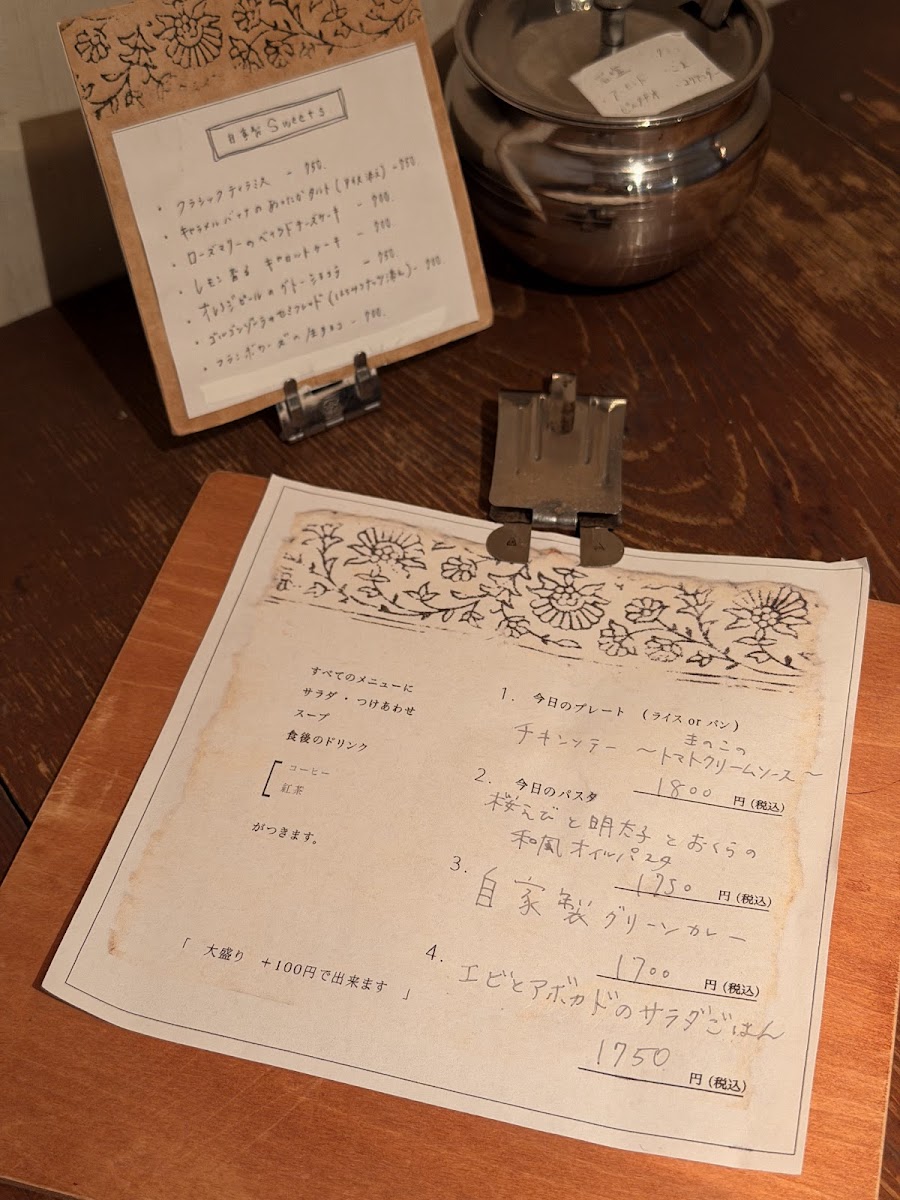 自家製 Sweets
・クラシックティラミス - 750.
・キャラメルバナナのあったかタルト(アイス添え) -950
・ローズマリーのベイクドチーズケーキ - 900.
・レモン香る キャロットケーキ - 900.
・オレンジピールのガトーショコラ - 950.
・ゴルゴンゾーラのセミフレッド
・フランボワーズの生チョコ - 900.
すべてのメニューに
サラダ・つけあわせ
スープ
食後のドリンク
コーヒー
紅茶
がつきます。
「 大盛り +100円で出来ます 」
1. 今日のプレート (ライス or パン)
チキンソテー ~きのこの
トマトクリームソース~
1800 円(税込)
2. 今日のパスタ
桜えびと明太子とおくらの
和風オイルパスタ
1750 円(税込)
3. 自家製グリーンカレー
1700 円(税込)
4. エビとアボカドのサラダごはん
1750 円(税込)